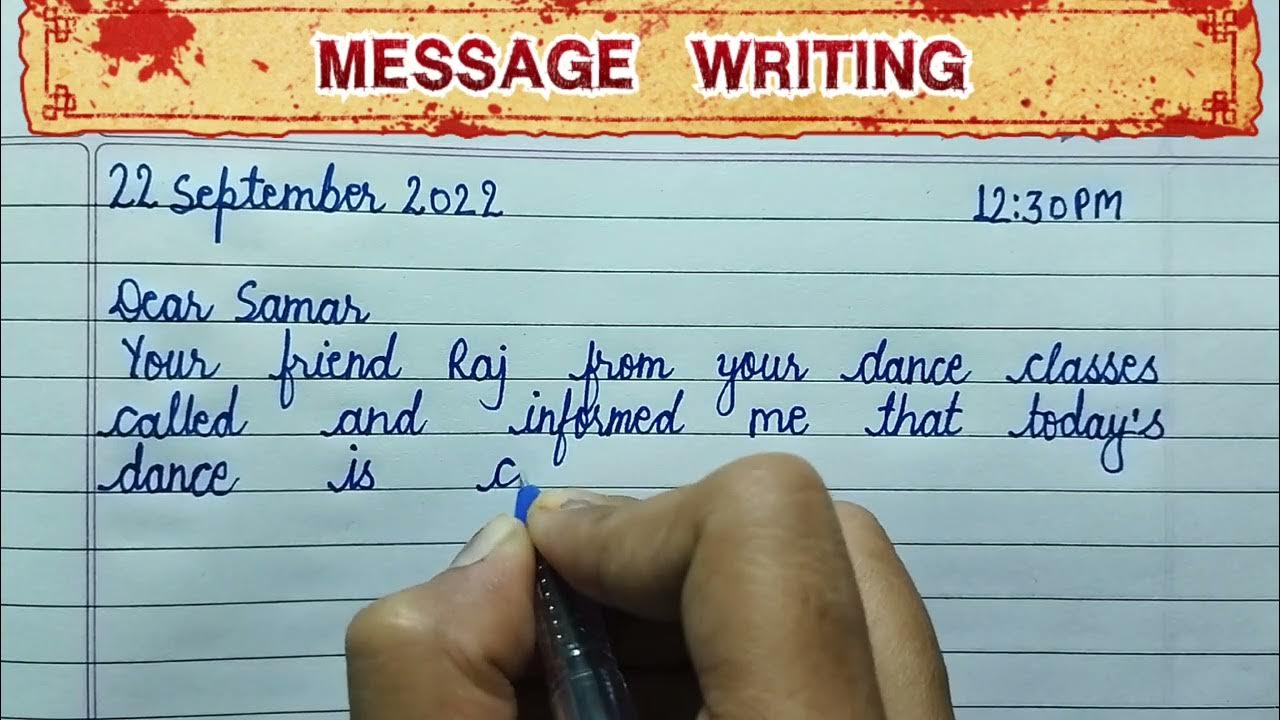 MESSAGE WRITING
22 September 2022 12:30PM
Dear Samar
Your friend Raj from your dance classes
called and informed me that today's
dance is c